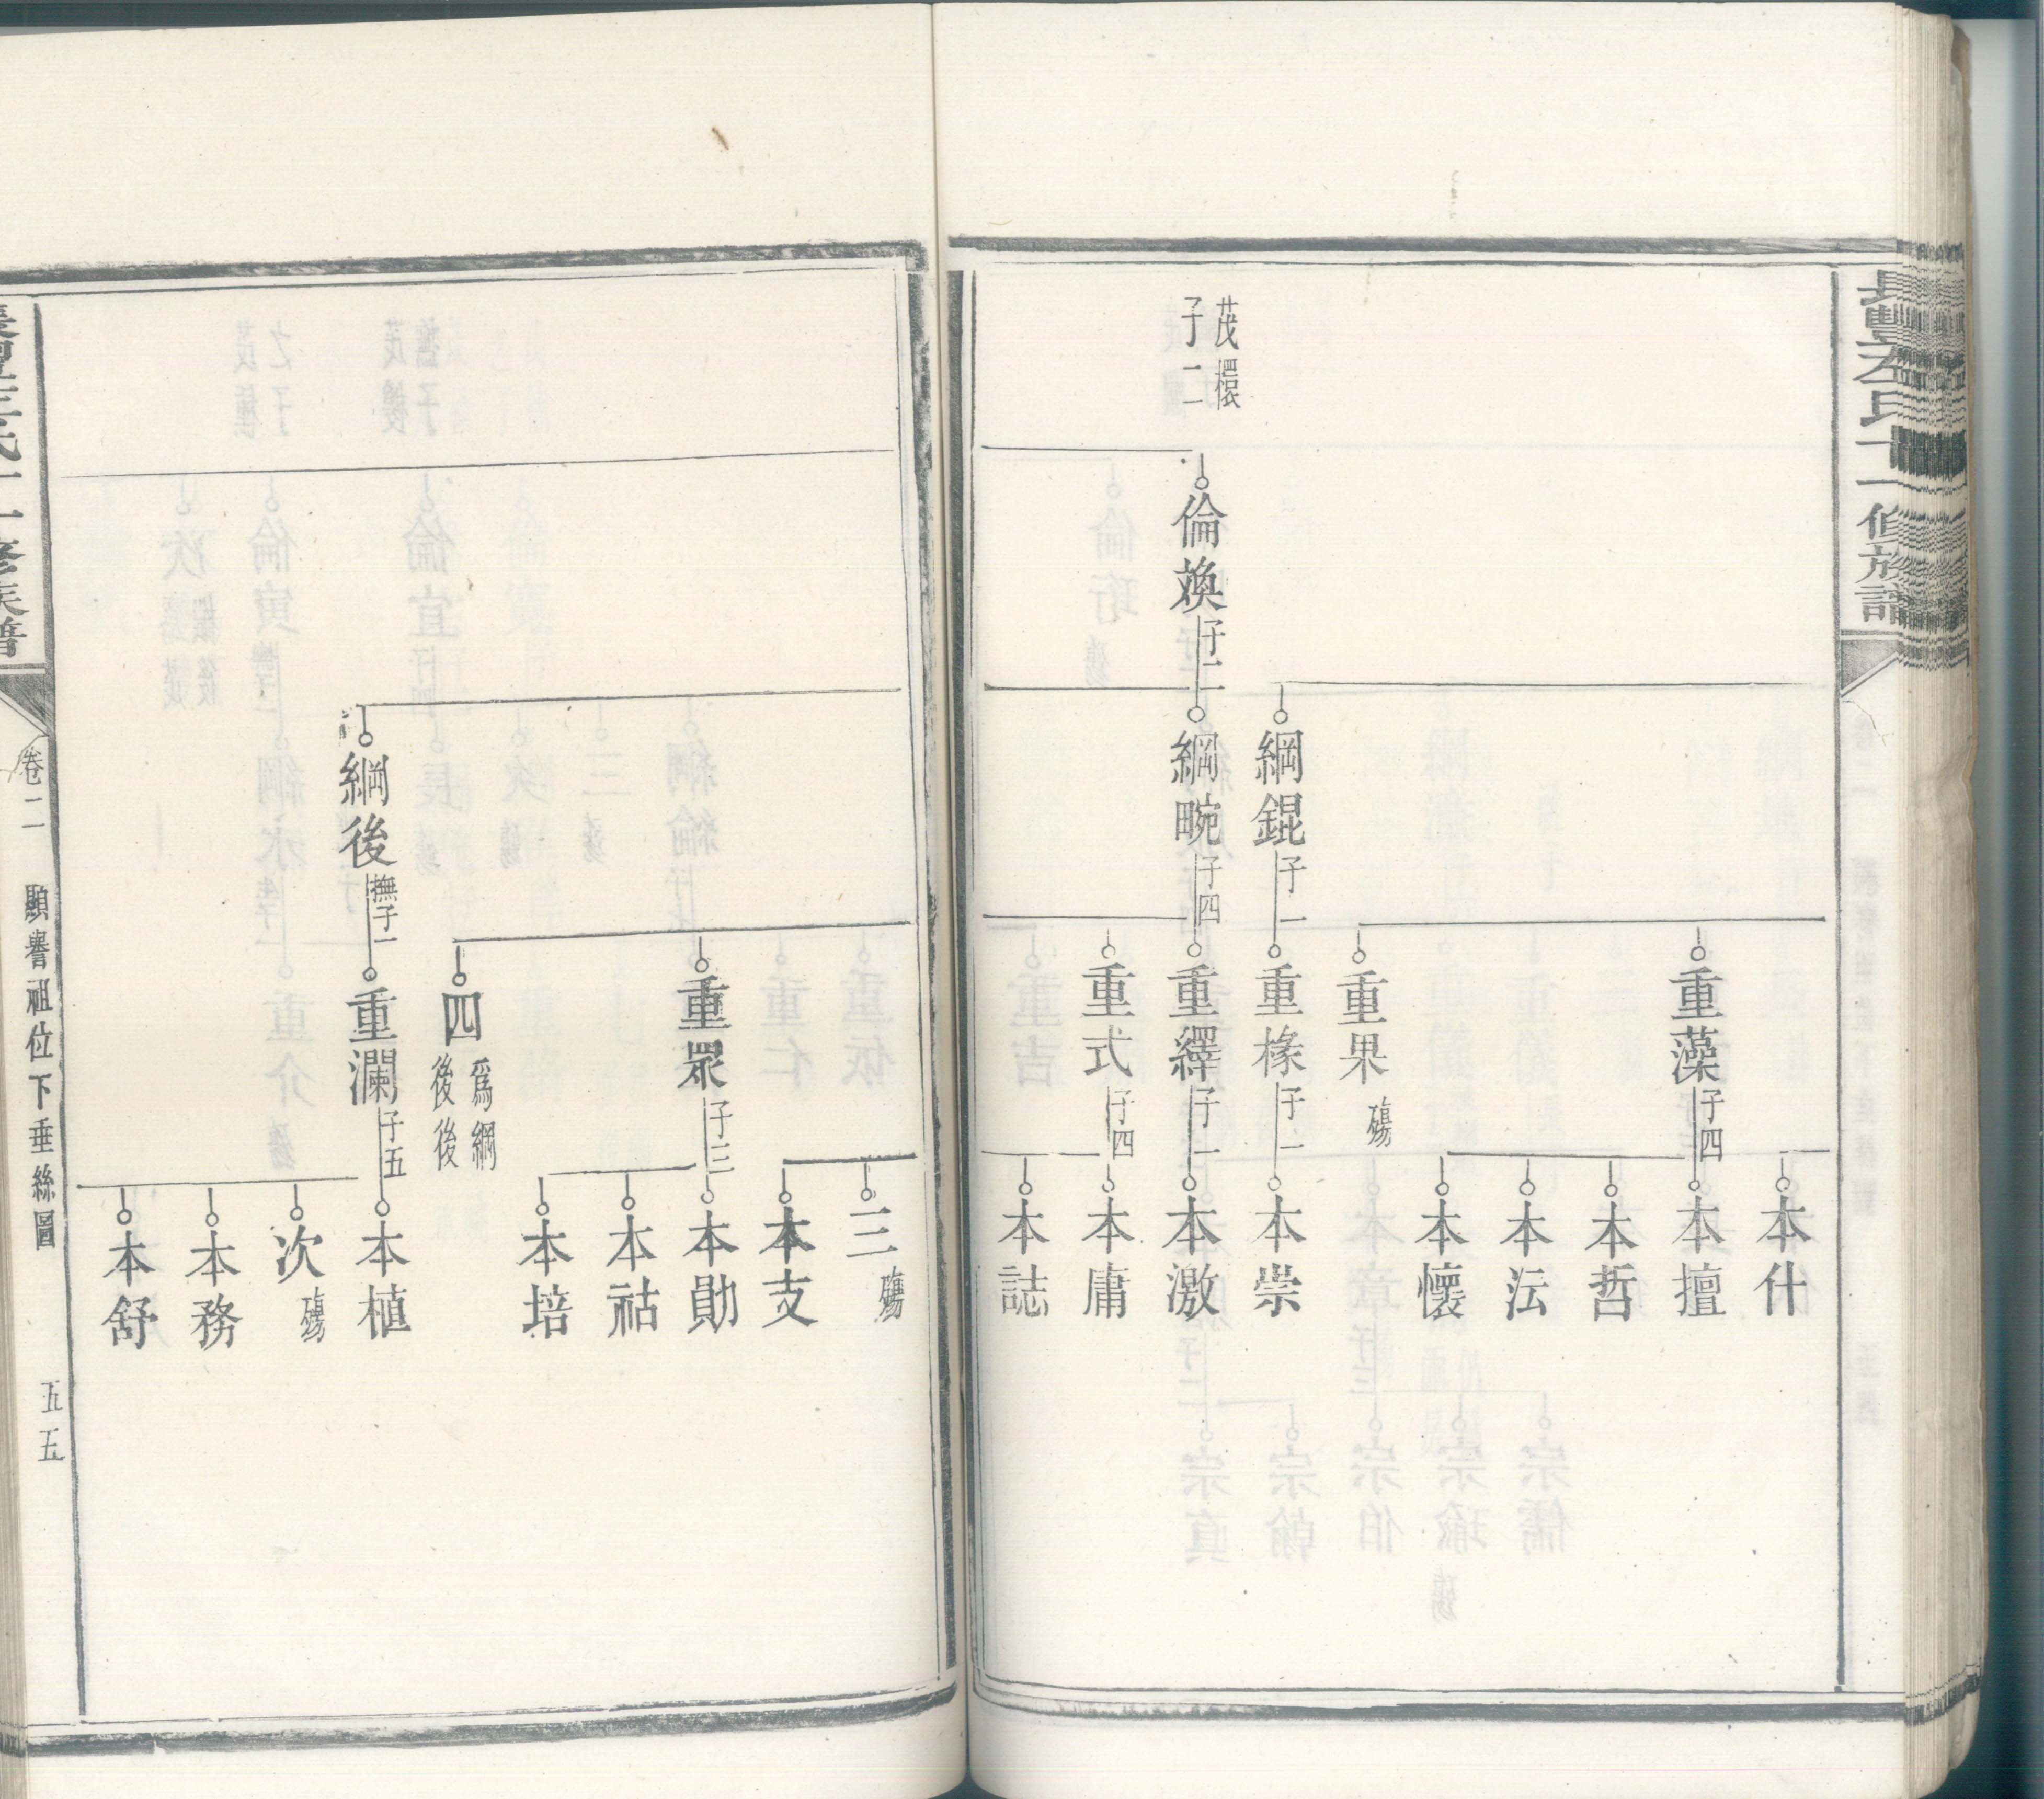 長豐左氏十一修族譜
本什
重藻 子四
本擅
本哲
本沄
本懷
重果 殤
綱錕 子一
重椽 子一
本崇
茂檈
子二
倫煥 子二
綱畹 子四
重繹 子一
本激
重式 子四
本庸
本誌
三 殤
本支
重眾 子三
本勛
本祜
本培
四 為綱
後後
綱後 撫子一
重瀾 子五
本植
次 殤
本務
本舒
卷二 顯譽祖位下垂絲圖 五五